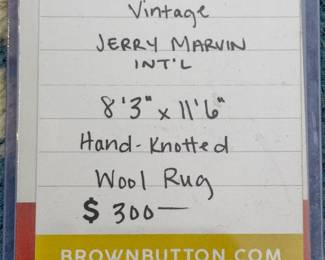 Vintage
JERRY MARVIN
INT'L
8'3" x 11'6"
Hand-Knotted
Wool Rug
$ 300—
BROWNBUTTON.COM